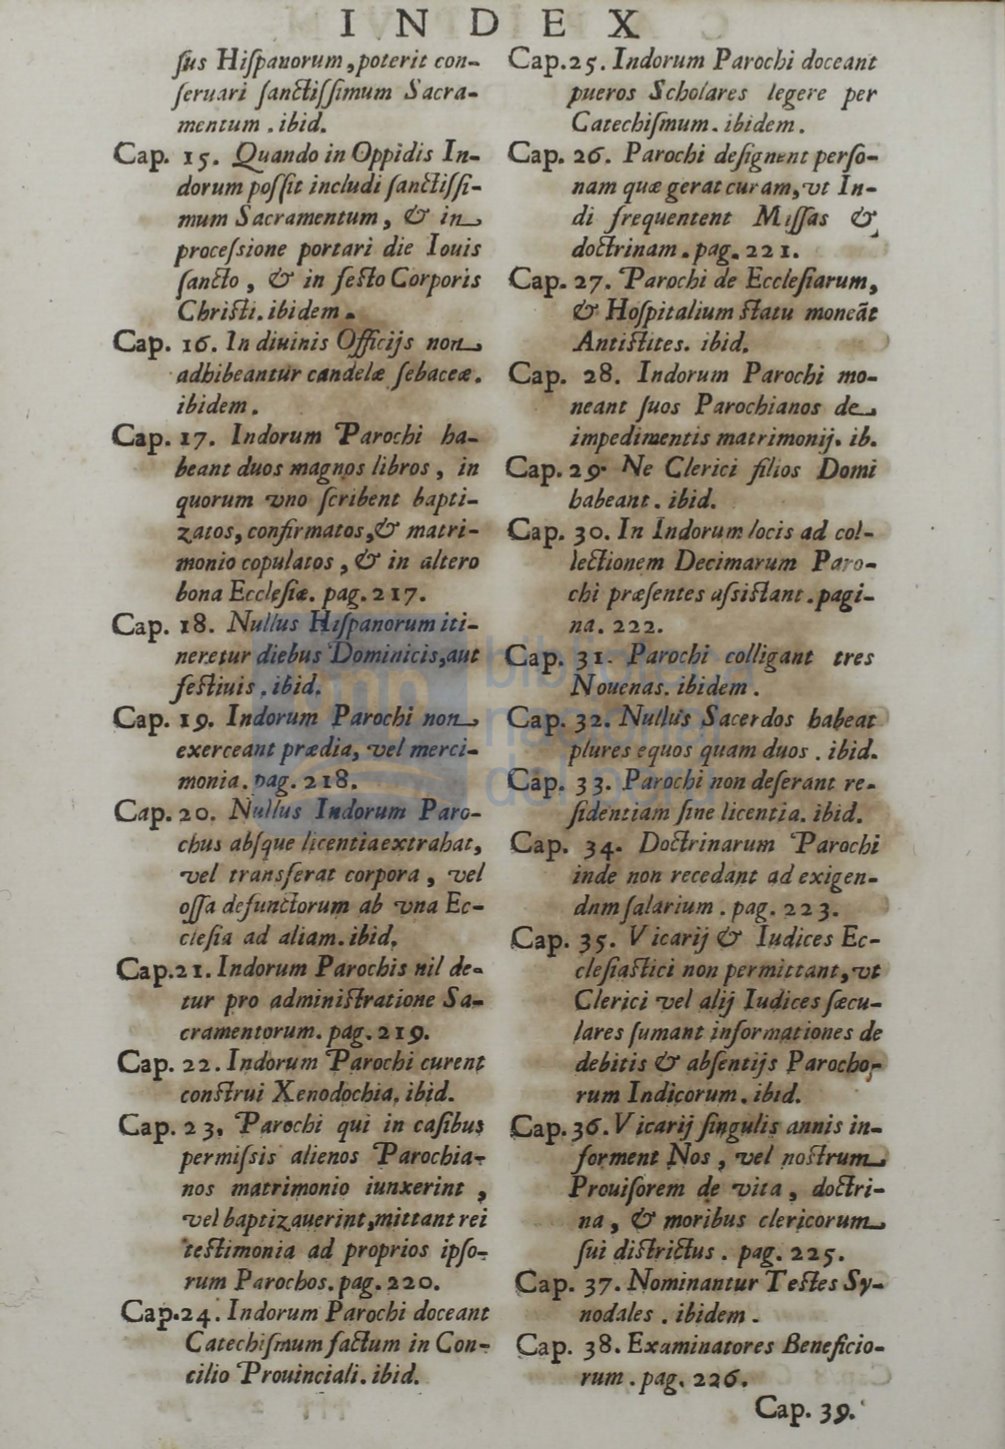 INDEX
ſus Hiſpanorum, poterit con-
ſeruari ſanctiſſimum Sacra-
mentum. ibid.
Cap. 15. Quando in Oppidis In-
dorum poſſit includi ſanctiſſi-
mum Sacramentum, & in
proceſsione portari die Iouis
ſancto, & in feſto Corporis
Chriſti. ibidem.
Cap. 16. In diuinis Officijs non
adhibeantur candelæ ſebaceæ.
ibidem.
Cap. 17. Indorum Parochi ha-
beant duos magnos libros, in
quorum vno ſcribent bapti-
zatos, confirmatos, & matri-
monio copulatos, & in altero
bona Eccleſiæ. pag. 217.
Cap. 18. Nullus Hiſpanorum iti-
neretur diebus Dominicis, aut
feſtiuis. ibid.
Cap. 19. Indorum Parochi non
exerceant prædia, vel merci-
monia. pag. 218.
Cap. 20. Nullus Indorum Paro-
chus abſque licentia extrahat,
vel transferat corpora, vel
oſſa defunctorum ab vna Ec-
cleſia ad aliam. ibid.
Cap. 21. Indorum Parochis nil de-
tur pro adminiſtratione Sa-
cramentorum. pag. 219.
Cap. 22. Indorum Parochi curent
conſtrui Xenodochia. ibid.
Cap. 23. Parochi qui in caſibus
permiſsis alienos Parochia-
nos matrimonio iunxerint,
vel baptizauerint, mittant rei
teſtimonia ad proprios ipſo-
rum Parochos. pag. 220.
Cap. 24. Indorum Parochi doceant
Catechiſmum factum in Con-
cilio Prouinciali. ibid.
Cap. 25. Indorum Parochi doceant
pueros Scholares legere per
Catechiſmum. ibidem.
Cap. 26. Parochi deſignent perſo-
nam quæ gerat curam, vt In-
di frequentent Miſſas &
doctrinam. pag. 221.
Cap. 27. Parochi de Eccleſiarum,
& Hoſpitalium ſtatu moneãt
Antiſtites. ibid.
Cap. 28. Indorum Parochi mo-
neant ſuos Parochianos de
impedimentis matrimonij. ib.
Cap. 29. Ne Clerici filios Domi
habeant. ibid.
Cap. 30. In Indorum locis ad col-
lectionem Decimarum Paro-
chi præſentes aſsiſtant. pagi-
na. 222.
Cap. 31. Parochi colligant tres
Nouenas. ibidem.
Cap. 32. Nullus Sacerdos habeat
plures equos quam duos. ibid.
Cap. 33. Parochi non deſerant re-
ſidentiam ſine licentia. ibid.
Cap. 34. Doctrinarum Parochi
inde non recedant ad exigen-
dnm ſalarium. pag. 223.
Cap. 35. Vicarij & Iudices Ec-
cleſiaſtici non permittant, vt
Clerici vel alij Iudices ſæcu-
lares ſumant informationes de
debitis & abſentijs Parocho-
rum Indicorum. ibid.
Cap. 36. Vicarij ſingulis annis in-
forment Nos, vel noſtrum
Prouiſorem de vita, doctri-
na, & moribus clericorum
ſui diſtrictus. pag. 225.
Cap. 37. Nominantur Teſtes Sy-
nodales. ibidem.
Cap. 38. Examinatores Beneficio-
rum. pag. 226.
Cap. 39.